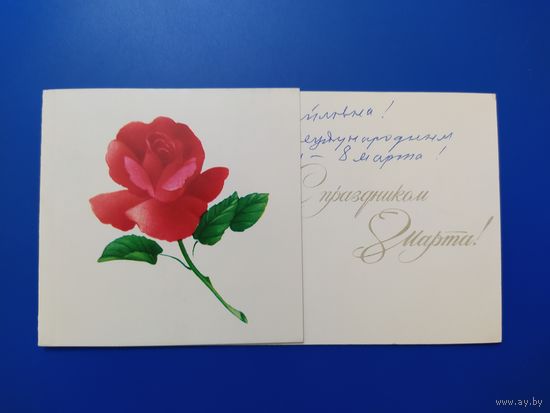 йловна!
еждународным
– 8 марта!
С праздником
8 Марта!
www.ay.by